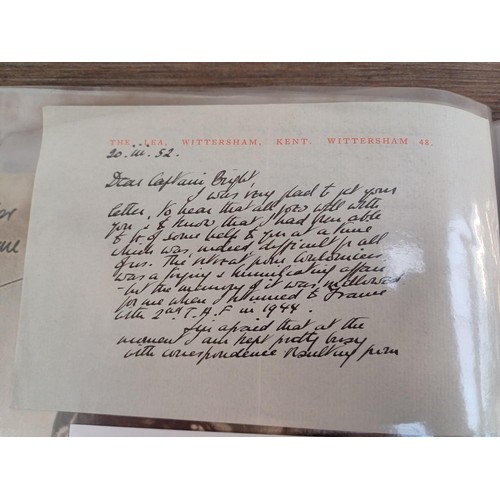 THE LEA, WITTERSHAM, KENT. WITTERSHAM 48.
20. iii. 52.
Dear Captain Bright,
I was very glad to get your
letter, to hear that all goes well with
you & to know that I had been able
to be of some help to you at a time
which was, indeed, difficult for all
of us. The retreat from
was a trying & humiliating affair
- but the memory of it was mellowed
for me when I returned to France
with 2nd T.A.F in 1944.
I'm afraid that at the
moment I am kept pretty busy
with correspondence resulting from